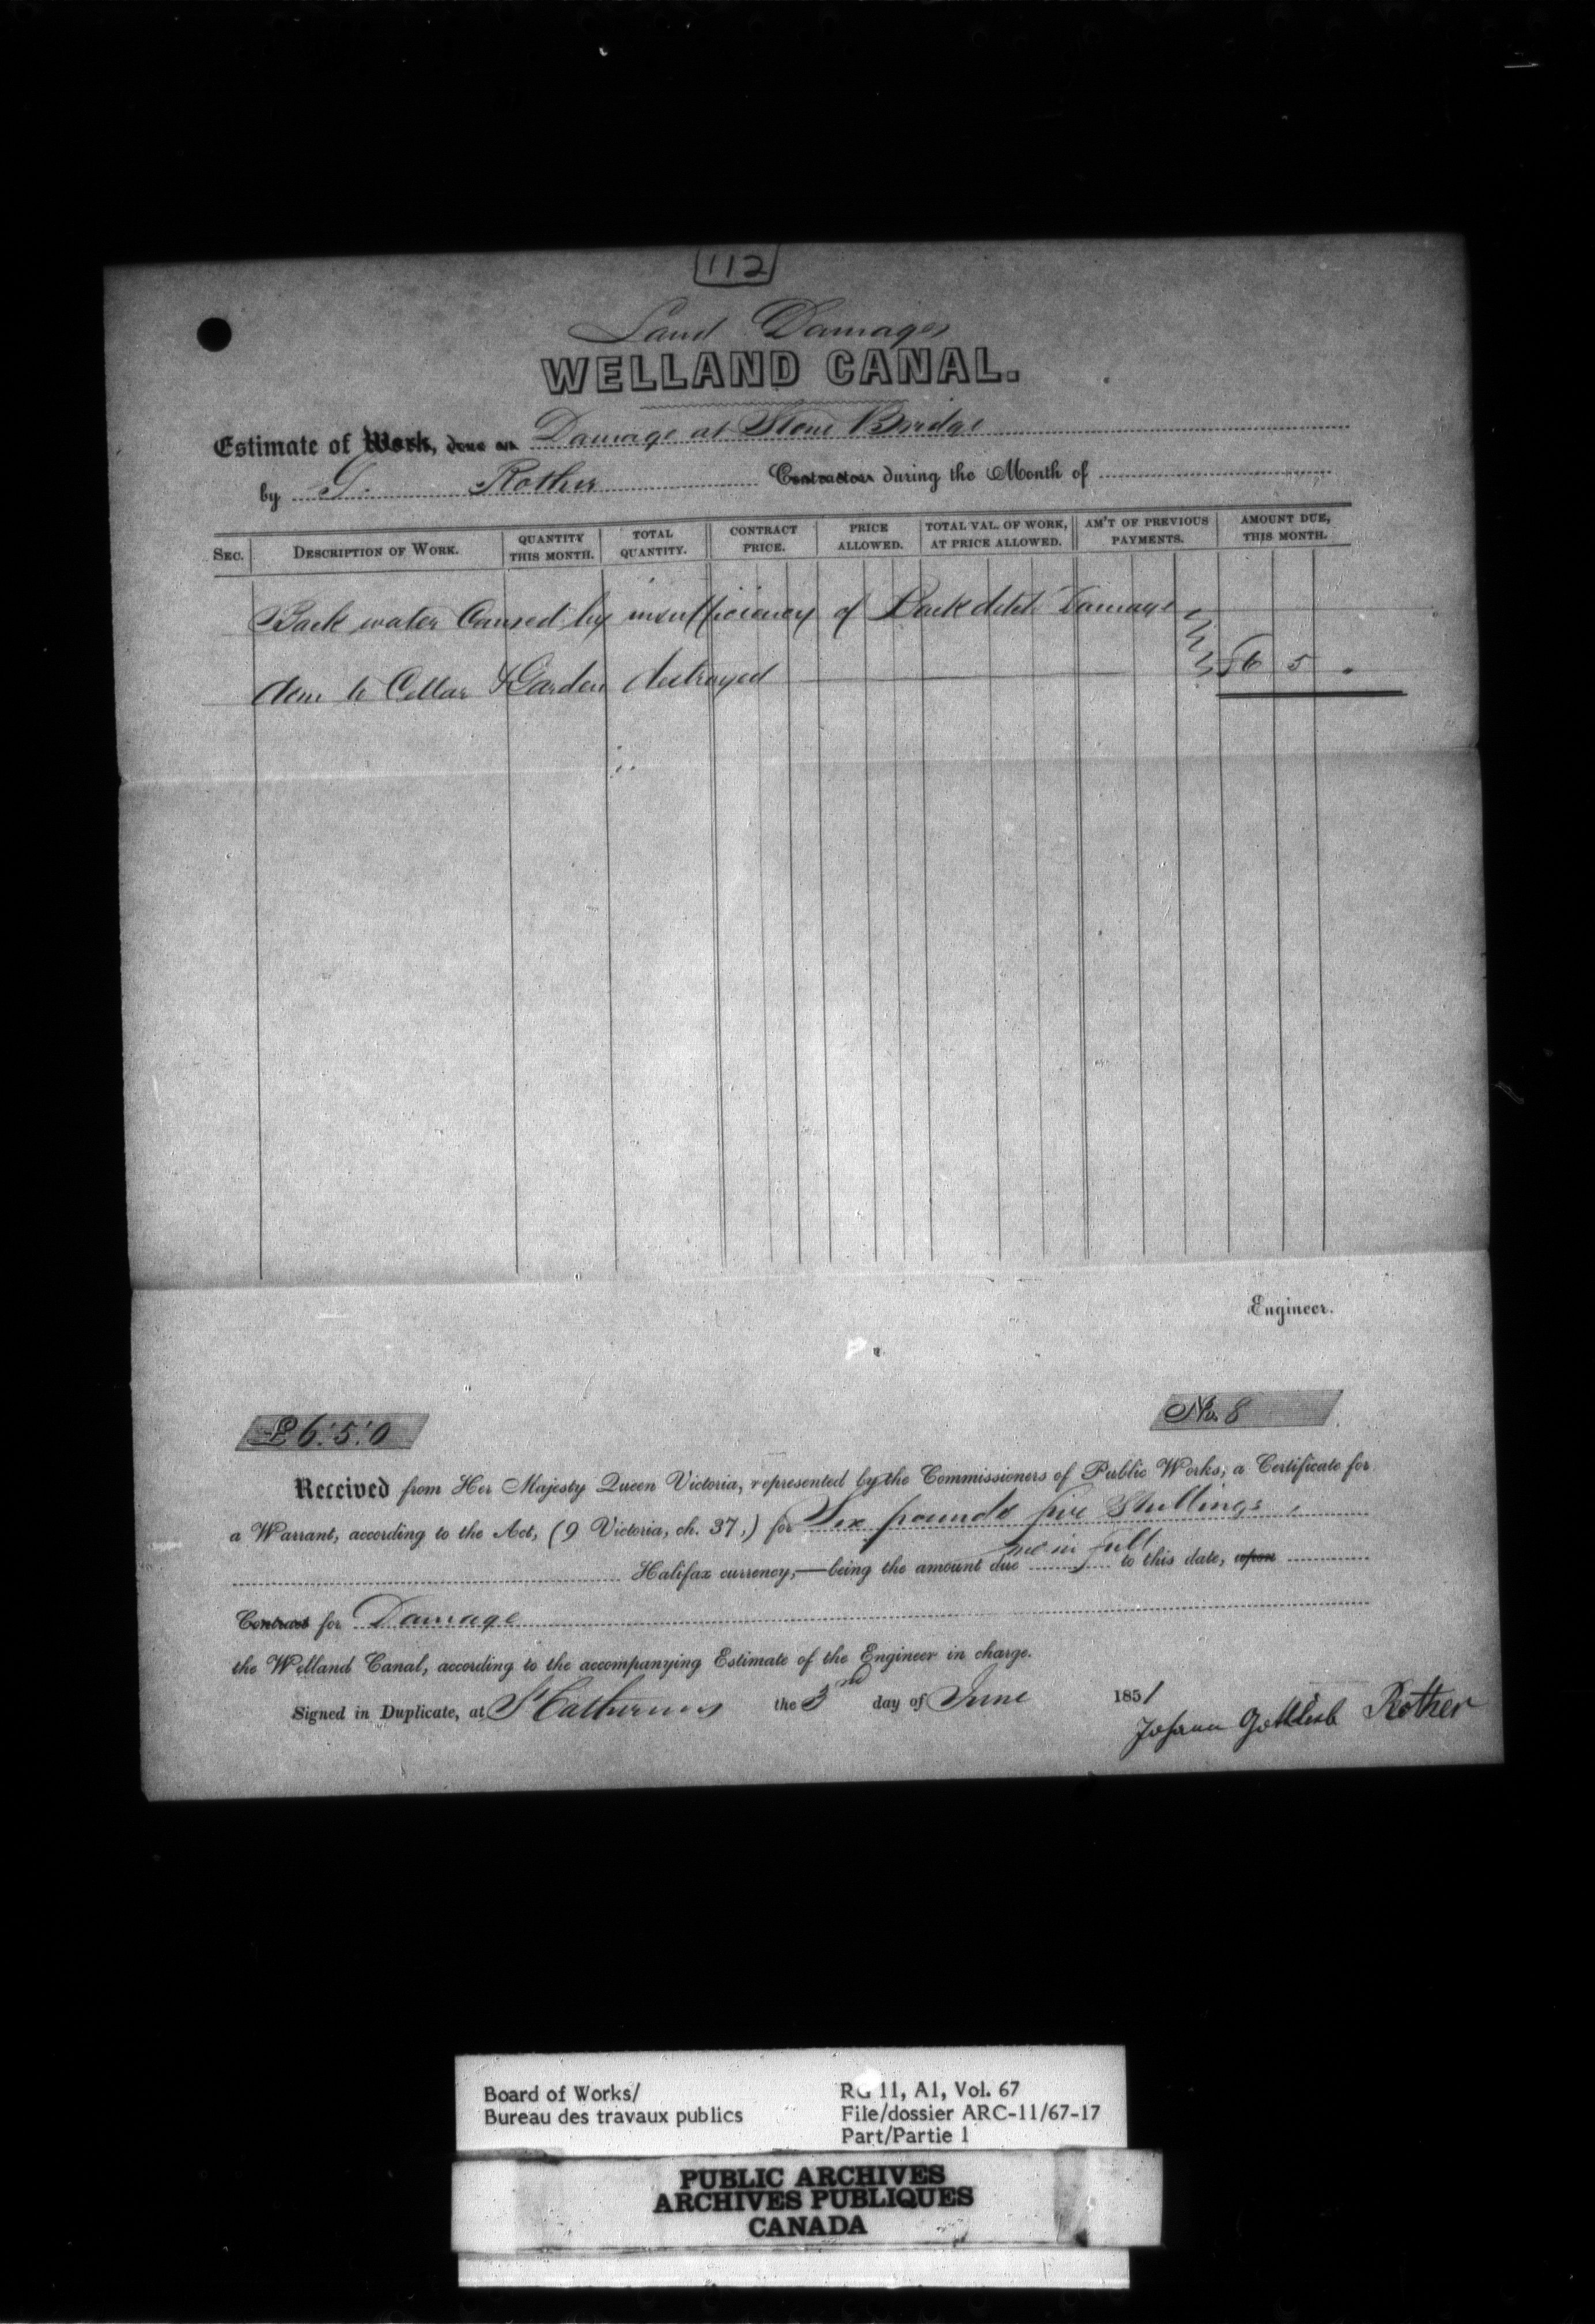 112
Land Damages
WELLAND CANAL.
Estimate of Work, done on Damage at Stone Bridge
by G. Rother Contractor during the Month of
SEC. DESCRIPTION OF WORK. QUANTITY THIS MONTH. TOTAL QUANTITY. CONTRACT PRICE. PRICE ALLOWED. TOTAL VAL. OF WORK, AT PRICE ALLOWED. AM'T OF PREVIOUS PAYMENTS. AMOUNT DUE, THIS MONTH.
Back water Caused by insufficiency of Back ditch Damage
done to Cellar & Garden destroyed £6 5 .
Engineer.
£6:5:0 No. 8
Received from Her Majesty Queen Victoria, represented by the Commissioners of Public Works, a Certificate for
a Warrant, according to the Act, (9 Victoria, ch. 37,) for Six pounds five Shillings
Halifax currency,—being the amount due me in full to this date, upon
Contract for Damage
the Welland Canal, according to the accompanying Estimate of the Engineer in charge.
Signed in Duplicate, at St Catherines the 3rd day of June 1851
Johann Gottlieb Rother
Board of Works/
Bureau des travaux publics
RG 11, A1, Vol. 67
File/dossier ARC-11/67-17
Part/Partie 1
PUBLIC ARCHIVES
ARCHIVES PUBLIQUES
CANADA